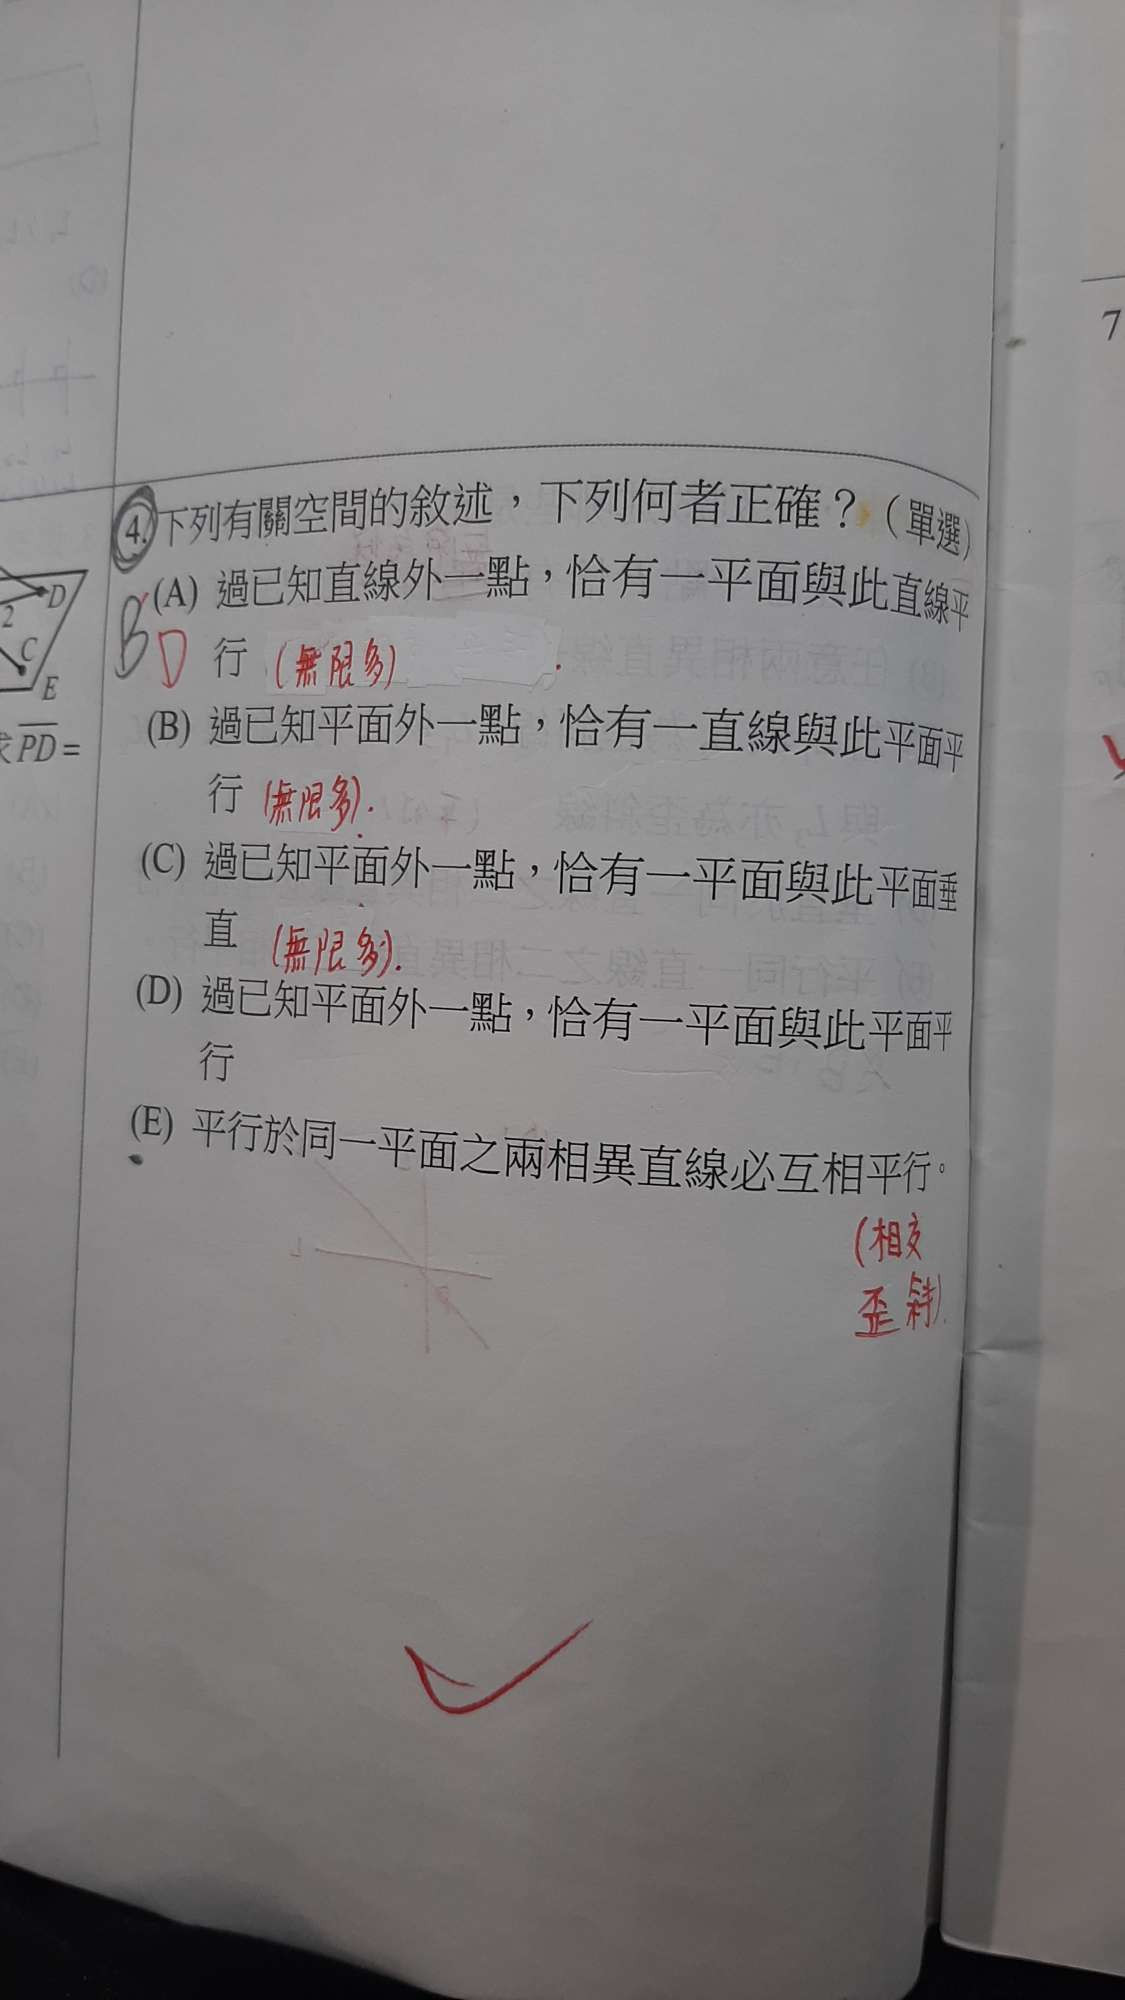 4. 下列有關空間的敘述，下列何者正確？（單選）
B D
(A) 過已知直線外一點，恰有一平面與此直線平
行 (無限多).
(B) 過已知平面外一點，恰有一直線與此平面平
行 (無限多).
(C) 過已知平面外一點，恰有一平面與此平面垂
直 (無限多).
(D) 過已知平面外一點，恰有一平面與此平面平
行
(E) 平行於同一平面之兩相異直線必互相平行。
(相交
歪斜).
D
2
C
E
求PD=
7